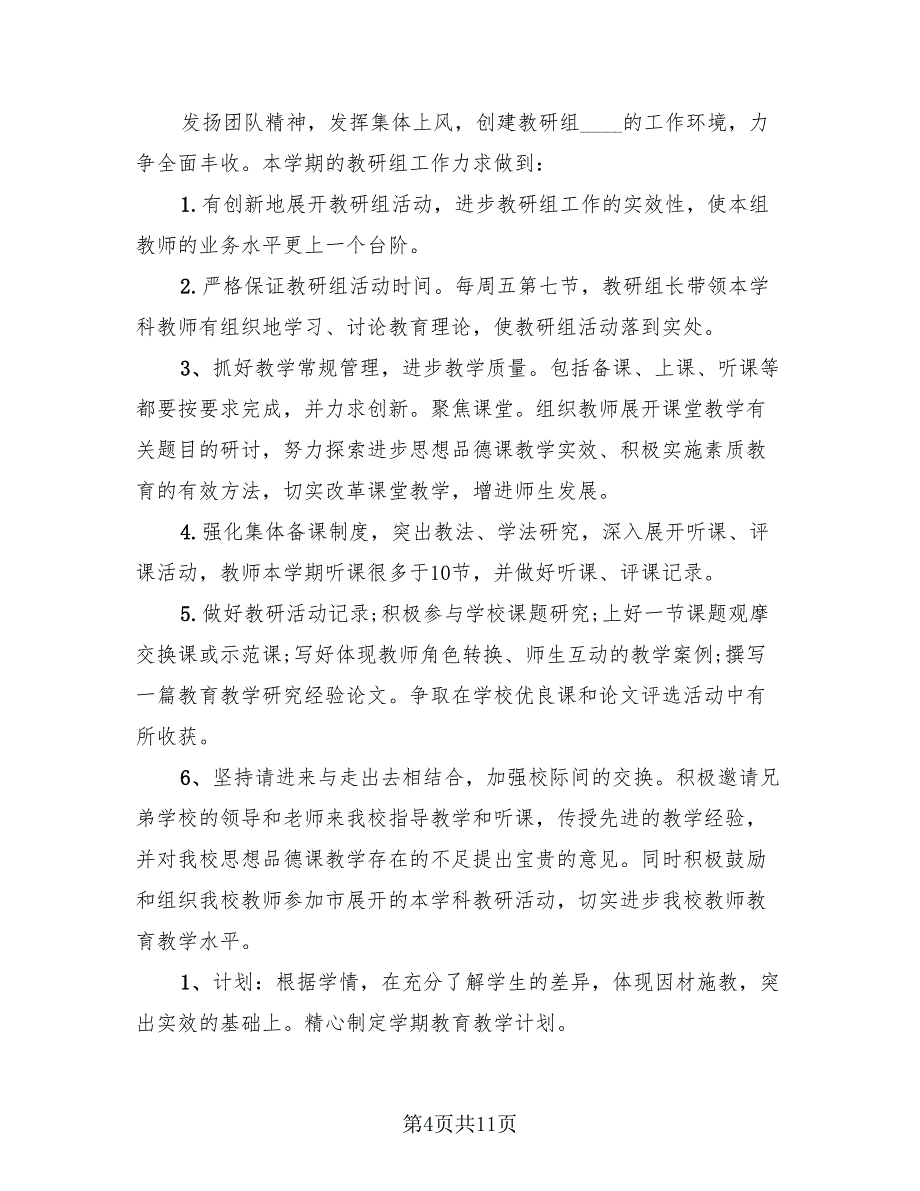 发扬团队精神，发挥集体上风，创建教研组____的工作环境，力
争全面丰收。本学期的教研组工作力求做到：
1. 有创新地展开教研组活动，进步教研组工作的实效性，使本组
教师的业务水平更上一个台阶。
2. 严格保证教研组活动时间。每周五第七节，教研组长带领本学
科教师有组织地学习、讨论教育理论，使教研组活动落到实处。
3、抓好教学常规管理，进步教学质量。包括备课、上课、听课等
都要按要求完成，并力求创新。聚焦课堂。组织教师展开课堂教学有
关题目的研讨，努力探索进步思想品德课教学实效、积极实施素质教
育的有效方法，切实改革课堂教学，增进师生发展。
4. 强化集体备课制度，突出教法、学法研究，深入展开听课、评
课活动，教师本学期听课很多于10节，并做好听课、评课记录。
5. 做好教研活动记录;积极参与学校课题研究;上好一节课题观摩
交换课或示范课;写好体现教师角色转换、师生互动的教学案例;撰写
一篇教育教学研究经验论文。争取在学校优良课和论文评选活动中有
所收获。
6、坚持请进来与走出去相结合，加强校际间的交换。积极邀请兄
弟学校的领导和老师来我校指导教学和听课，传授先进的教学经验，
并对我校思想品德课教学存在的不足提出宝贵的意见。同时积极鼓励
和组织我校教师参加市展开的本学科教研活动，切实进步我校教师教
育教学水平。
1、计划：根据学情，在充分了解学生的差异，体现因材施教，突
出实效的基础上。精心制定学期教育教学计划。
第4页共11页